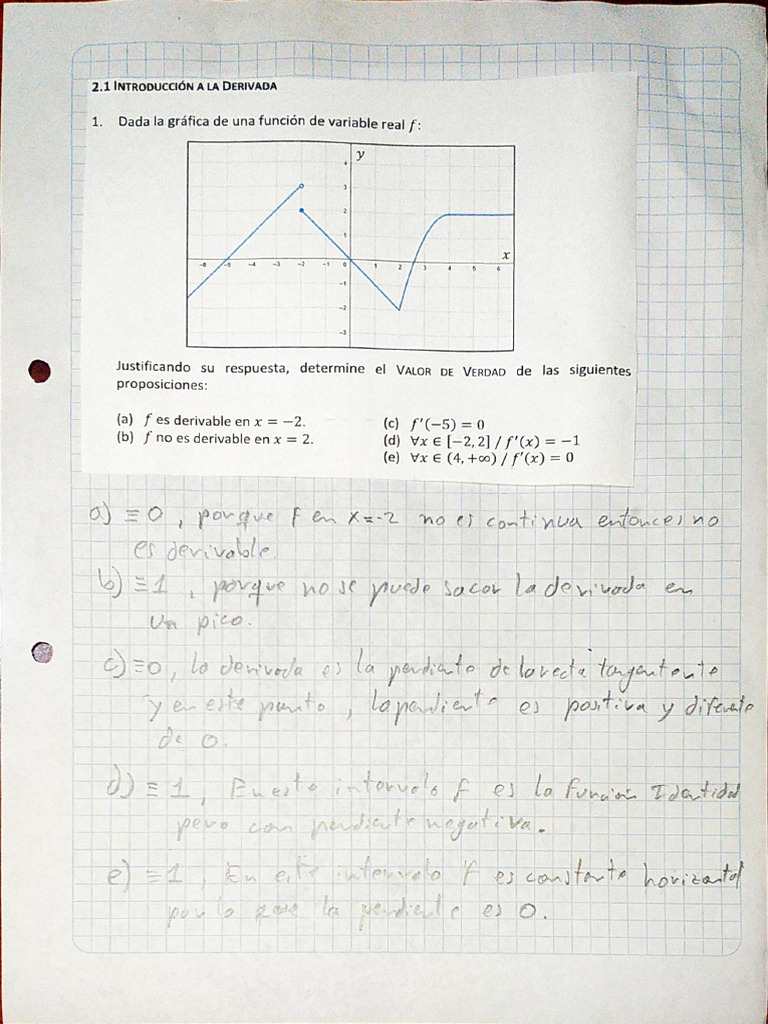 2.1 INTRODUCCIÓN A LA DERIVADA
1. Dada la gráfica de una función de variable real f:
y
4
3
2
1
x
-6 -5 -4 -3 -2 -1 0 1 2 3 4 5 6
-1
-2
-3
Justificando su respuesta, determine el VALOR DE VERDAD de las siguientes
proposiciones:
(a) f es derivable en x = −2. (c) f'(−5) = 0
(b) f no es derivable en x = 2. (d) ∀x ∈ [−2, 2] / f'(x) = −1
(e) ∀x ∈ (4, +∞) / f'(x) = 0
a) ≡ 0, porque f en x=-2 no es continua entonces no
es derivable.
b) ≡ 1, porque no se puede sacar la derivada en
un pico.
c) ≡ 0, la derivada es la pendiente de la recta tangentente
y en este punto, la pendiente es positiva y diferente
de 0.
d) ≡ 1, En este intervalo f es la función Identidad
pero con pendiente negativa.
e) ≡ 1, En este intervalo f es constante horizontal
por lo que la pendiente es 0.